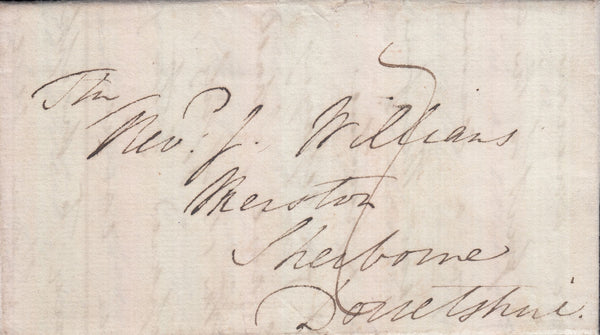 The
Revd. J. Williams
Marston
Sherborne
Dorsetshire.
7